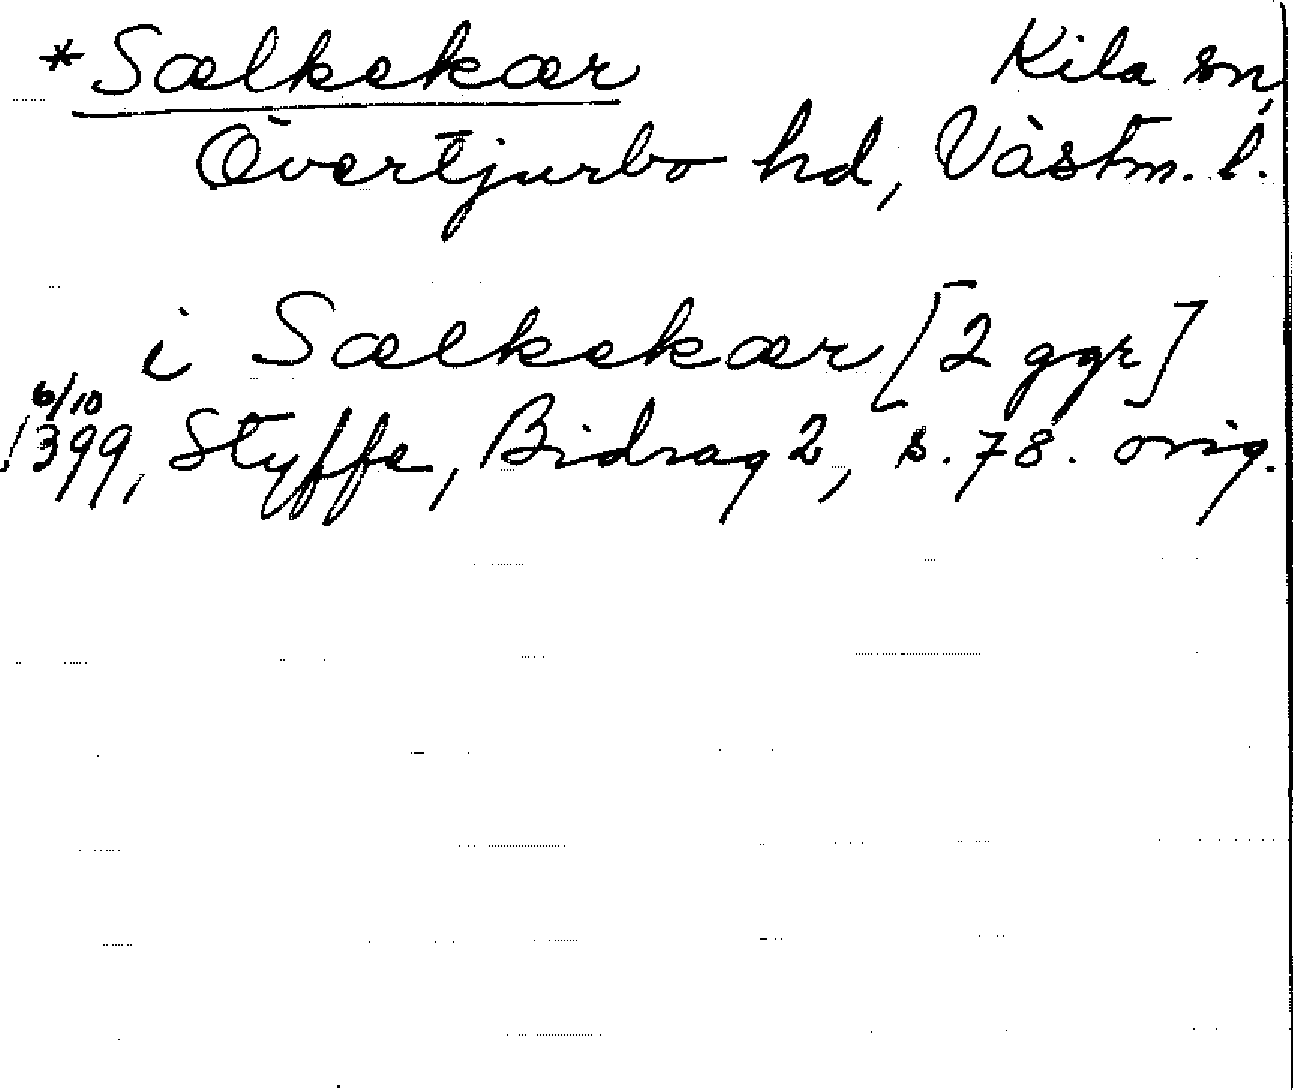 *Sælkekær Kila sn,
Övertjurbo hd, Västm. l.
i Sælkekær [2 ggr]
6/10
1399, Styffe, Bidrag 2, s. 78. orig.